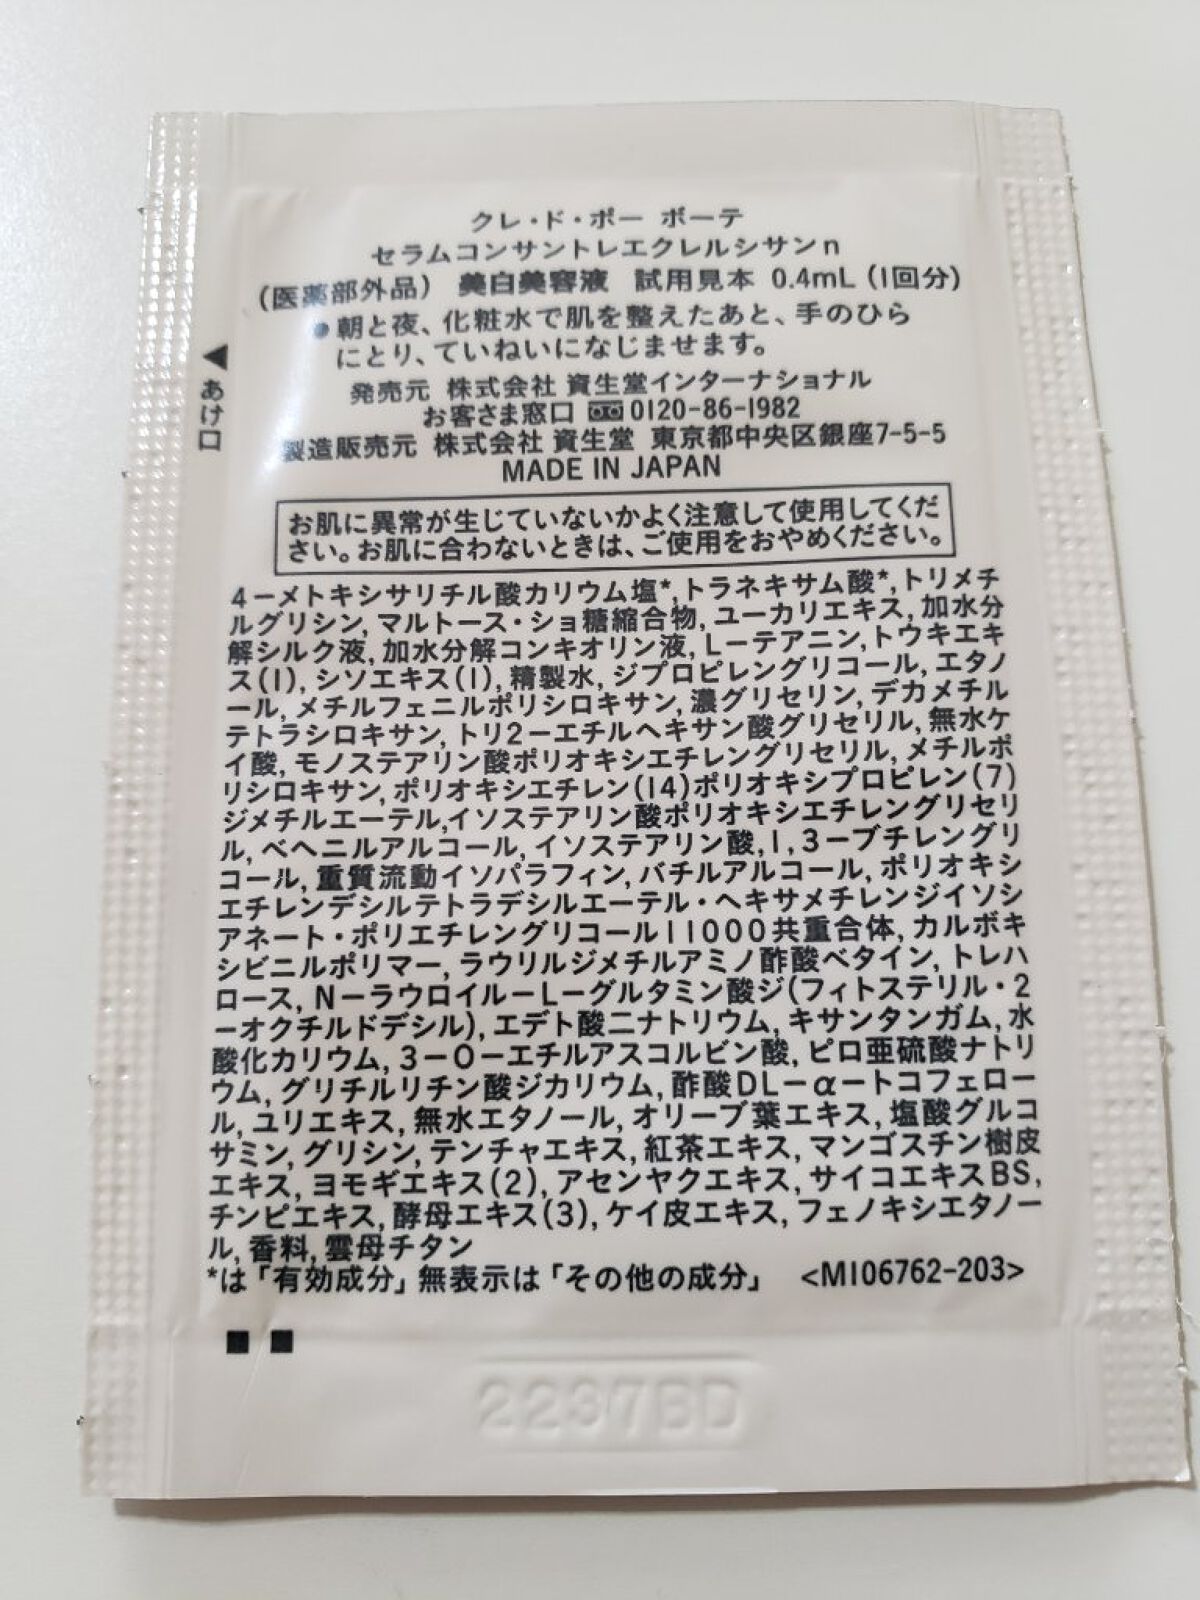 クレ・ド・ポー ボーテ
セラムコンサントレエクレルシサンn
(医薬部外品) 美白美容液 試用見本 0.4mL(1回分)
●朝と夜、化粧水で肌を整えたあと、手のひら
にとり、ていねいになじませます。
◀あけ口
発売元 株式会社 資生堂インターナショナル
お客さま窓口 0120-86-1982
製造販売元 株式会社 資生堂 東京都中央区銀座7-5-5
MADE IN JAPAN
お肌に異常が生じていないかよく注意して使用してくだ
さい。お肌に合わないときは、ご使用をおやめください。
4-メトキシサリチル酸カリウム塩*,トラネキサム酸*,トリメチ
ルグリシン,マルトース・ショ糖縮合物,ユーカリエキス,加水分
解シルク液,加水分解コンキオリン液,L-テアニン,トウキエキ
ス(1),シソエキス(1),精製水,ジプロピレングリコール,エタノ
ール,メチルフェニルポリシロキサン,濃グリセリン,デカメチル
テトラシロキサン,トリ2-エチルヘキサン酸グリセリル,無水ケ
イ酸,モノステアリン酸ポリオキシエチレングリセリル,メチルポ
リシロキサン,ポリオキシエチレン(14)ポリオキシプロピレン(7)
ジメチルエーテル,イソステアリン酸ポリオキシエチレングリセリ
ル,ベヘニルアルコール,イソステアリン酸,1,3-ブチレングリ
コール,重質流動イソパラフィン,バチルアルコール,ポリオキシ
エチレンデシルテトラデシルエーテル・ヘキサメチレンジイソシ
アネート・ポリエチレングリコール11000共重合体,カルボキ
シビニルポリマー,ラウリルジメチルアミノ酢酸ベタイン,トレハ
ロース,N-ラウロイル-L-グルタミン酸ジ(フィトステリル・2
-オクチルドデシル),エデト酸二ナトリウム,キサンタンガム,水
酸化カリウム,3-O-エチルアスコルビン酸,ピロ亜硫酸ナトリ
ウム,グリチルリチン酸ジカリウム,酢酸DL-α-トコフェロー
ル,ユリエキス,無水エタノール,オリーブ葉エキス,塩酸グルコ
サミン,グリシン,テンチャエキス,紅茶エキス,マンゴスチン樹皮
エキス,ヨモギエキス(2),アセンヤクエキス,サイコエキスBS,
チンピエキス,酵母エキス(3),ケイ皮エキス,フェノキシエタノー
ル,香料,雲母チタン
*は「有効成分」無表示は「その他の成分」 <MI06762-203>
2237BD